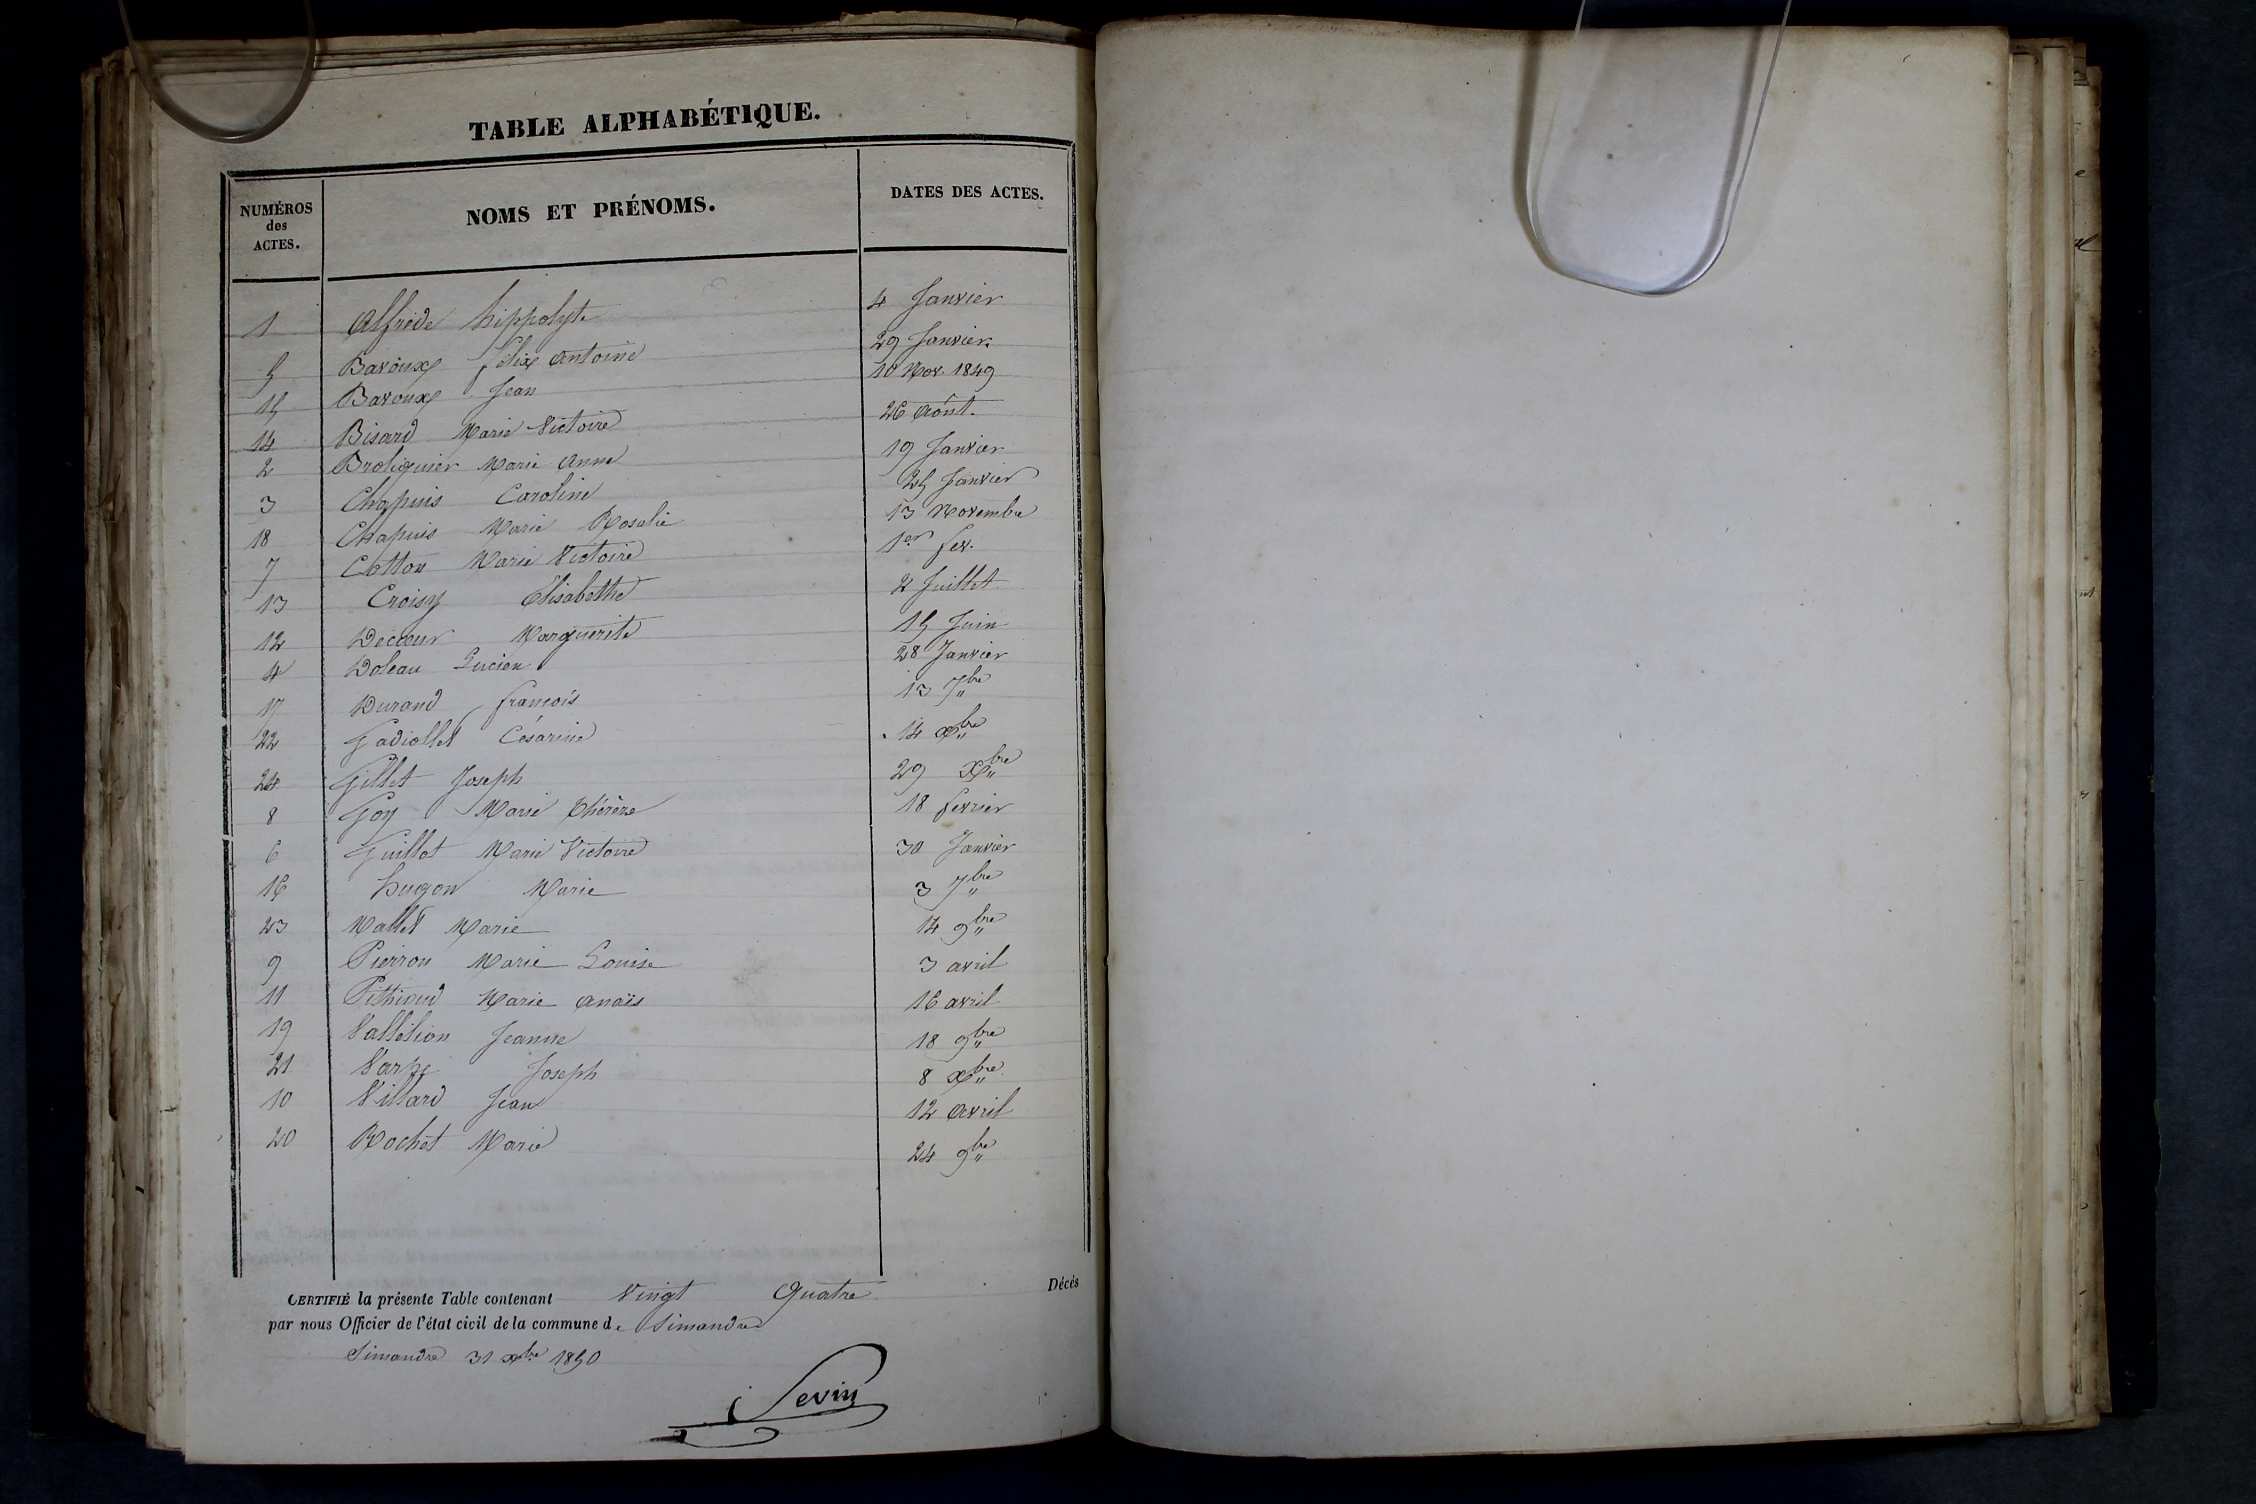 TABLE ALPHABÉTIQUE.
NUMÉROS des ACTES. NOMS ET PRÉNOMS. DATES DES ACTES.
1 Alfrède hippolyte 4 Janvier
5 Bavoux félix antoine 29 Janvier
15 Bavoux Jean 10 Nov. 1849
14 Bisard Marie Victoire 26 Aôut.
2 Broliquier Marie Anne 19 Janvier
3 Chapuis Caroline 25 Janvier
18 Chapuis Marie Rosalie 13 Novembre
7 Cotton Marie Victoire 1er fev.
13 Croisy Elisabethe 2 Juillet
12 Decœur Marguerite 15 Juin
4 Doleau Lucien 28 Janvier
17 Durand francois 13 7bre
22 Gadiollet Césarine 14 xbre
24 Gillet Joseph 29 xbre
8 Goy Marie thérèze 18 fevrier
6 Guillot Marie Victoire 30 Janvier
16 hugon Marie 3 7bre
23 Mallet Marie 14 9bre
9 Pierron Marie Louise 3 avril
11 Pithioud Marie anaïs 16 avril
19 Vallélion Jeanne 18 9bre
21 Joseph 8 xbre
10 Villard Jean 12 avril
20 Rochet Marie 24 9bre
CERTIFIÉ la présente Table contenant Vingt Quatre Décés
par nous Officier de l'état civil de la commune de Simandre
Simandre 31 xbre 1850
Sevin